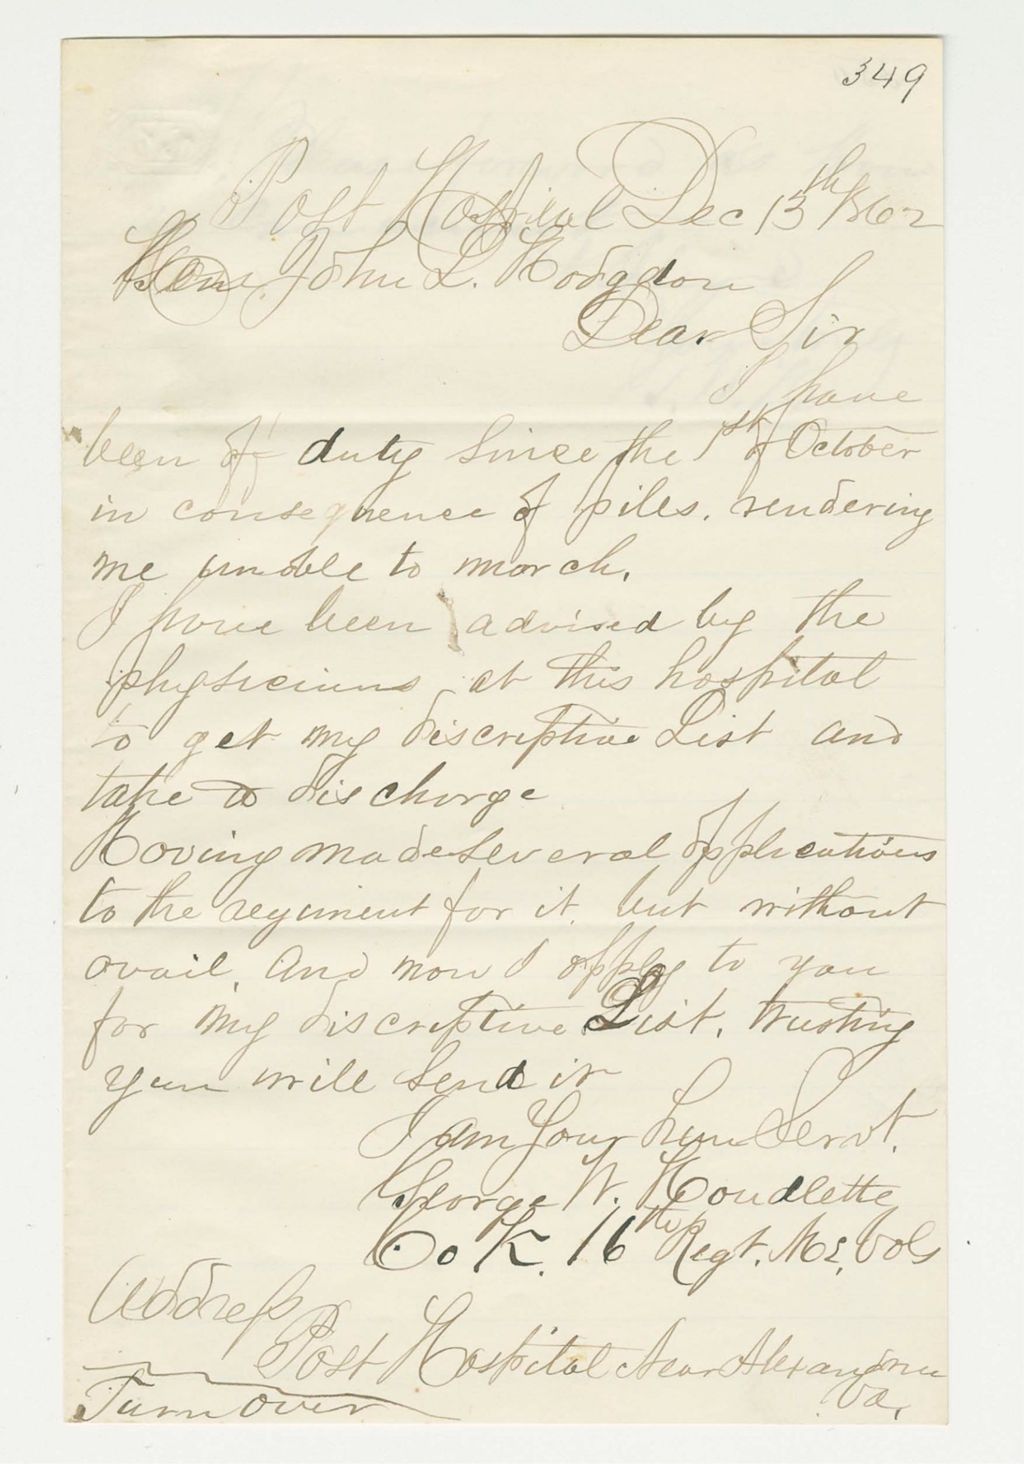 349
Post Hospital Dec 13th 1862
Hon. John L. Hodgdon
Dear Sir
I have
been of duty since the 1st of October
in consequence of piles. rendering
me unable to march.
I have been advised by the
physicians at this hospital
to get my discriptive List and
take a discharge
Having made several applications
to the regiment for it. but without
avail, And now I apply to you
for my discriptive List, trusting
you will send it
I am Your hum Servt.
George W. Houdlette
Co K. 16th Regt. Me. Vols
Address
Post Hospital Near Alexandria
Va.
Turn over